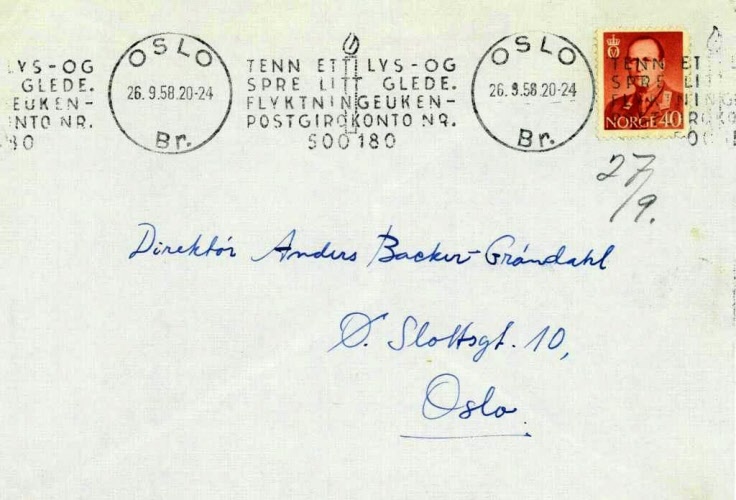 LYS-OG
GLEDE.
EUKEN-
NTO NR.
80
OSLO
26. 9.58.20-24
Br.
TENN ET LYS-OG
SPRE LITT GLEDE.
FLYKTNINGEUKEN-
POSTGIROKONTO NR.
500180
OSLO
26. 9.58.20-24
Br.
TENN ET L
SPRE LIT
FLYKTNING
NORGE 40
27/9.
Direktør Anders Backer-Grøndahl
Ø. Slottsgt. 10,
Oslo.